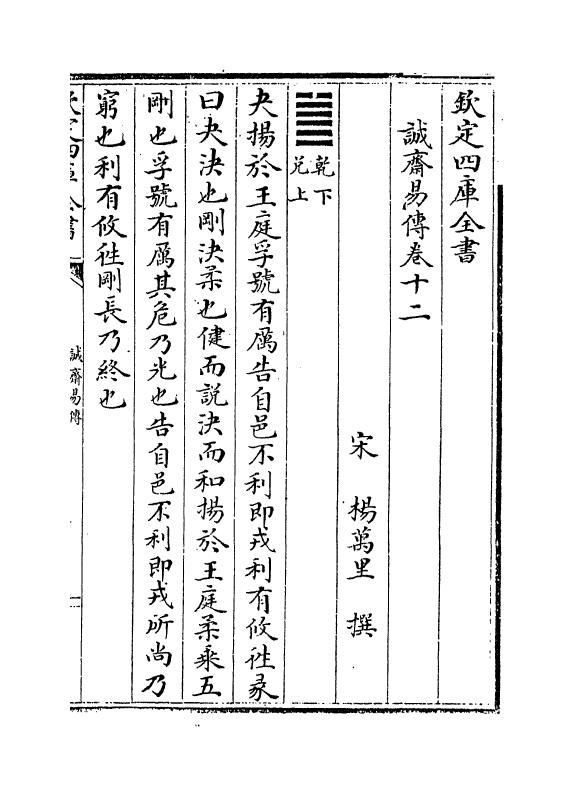 欽定四庫全書
誠齋易傳卷十二
宋 楊萬里 撰
䷪乾下兑上
夬揚於王庭孚號有厲告自邑不利即戎利有攸往彖
曰夬決也剛決柔也健而説決而和揚於王庭柔乗五
剛也孚號有厲其危乃光也告自邑不利即戎所尚乃
窮也利有攸往剛長乃終也
欽定四庫全書
誠齋易傳
一